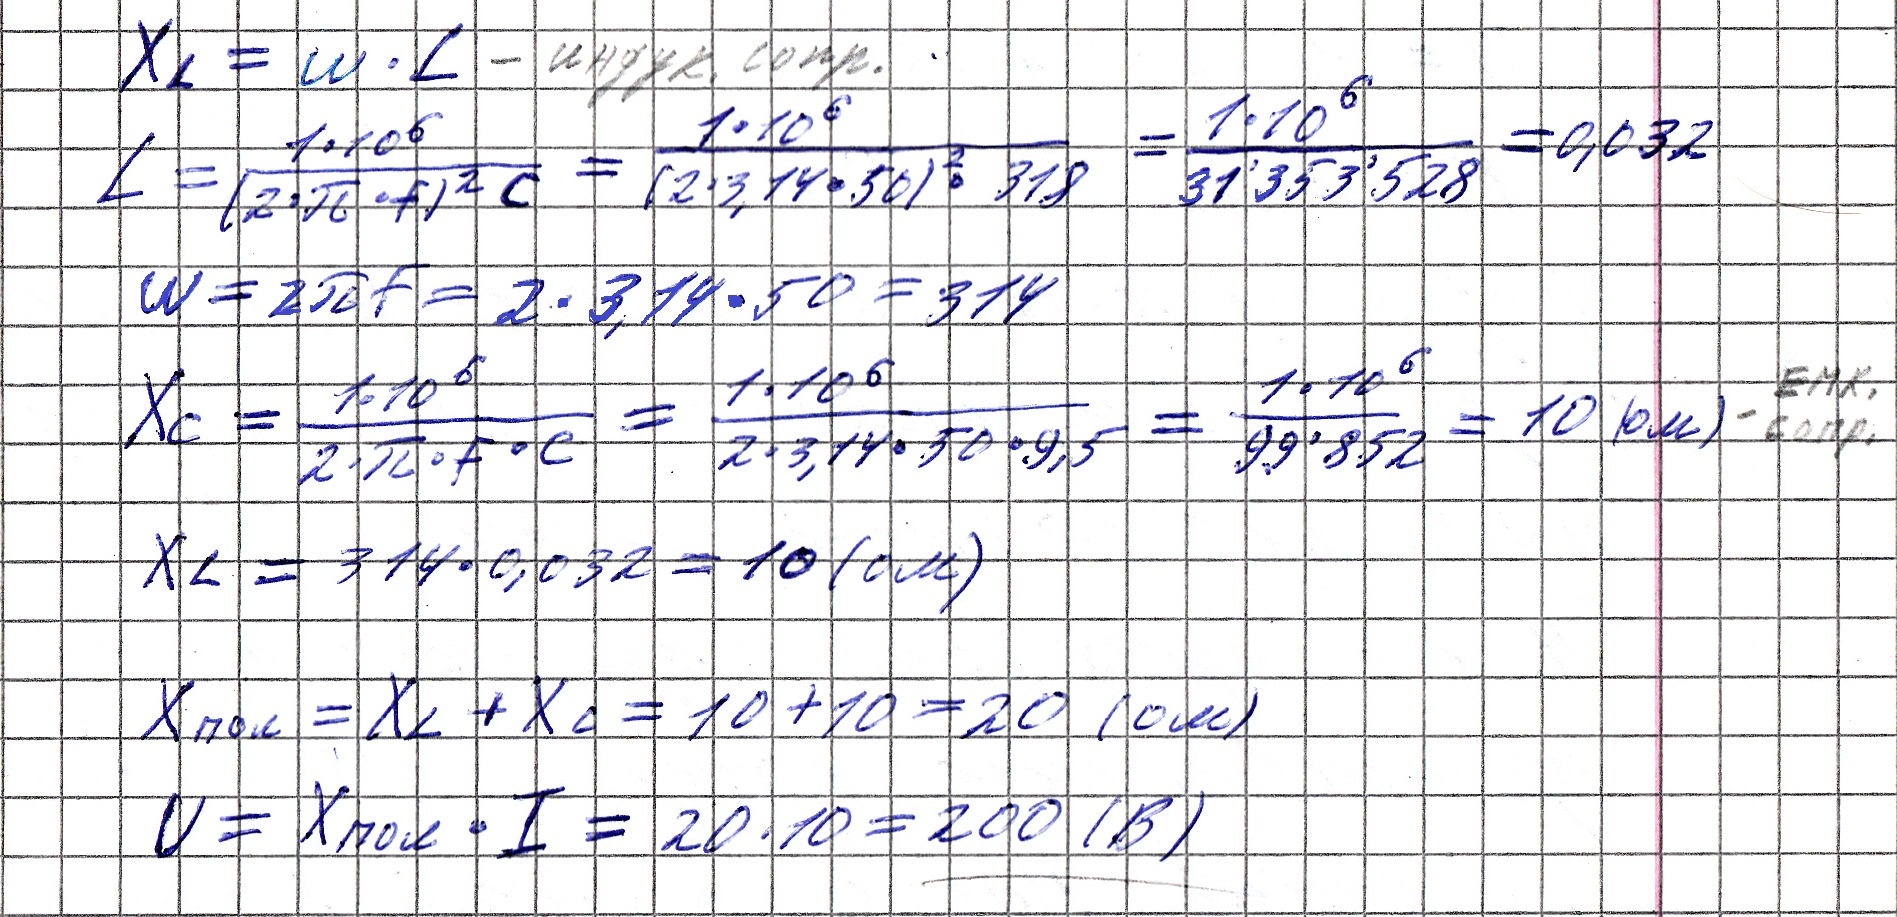 X_L = ω · L – индук. сопр.
L = 1·10^6 / (2·π·f)^2 C = 1·10^6 / (2·3,14·50)^2 · 318 = 1·10^6 / 31'353'528 = 0,032
ω = 2πf = 2·3,14·50 = 314
X_C = 1·10^6 / 2·π·f·C = 1·10^6 / 2·3,14·50·9,5 = 1·10^6 / 99'852 = 10 (ом) – емк. сопр.
X_L = 314·0,032 = 10 (ом)
X_пол = X_L + X_C = 10 + 10 = 20 (ом)
U = X_пол · I = 20·10 = 200 (В)